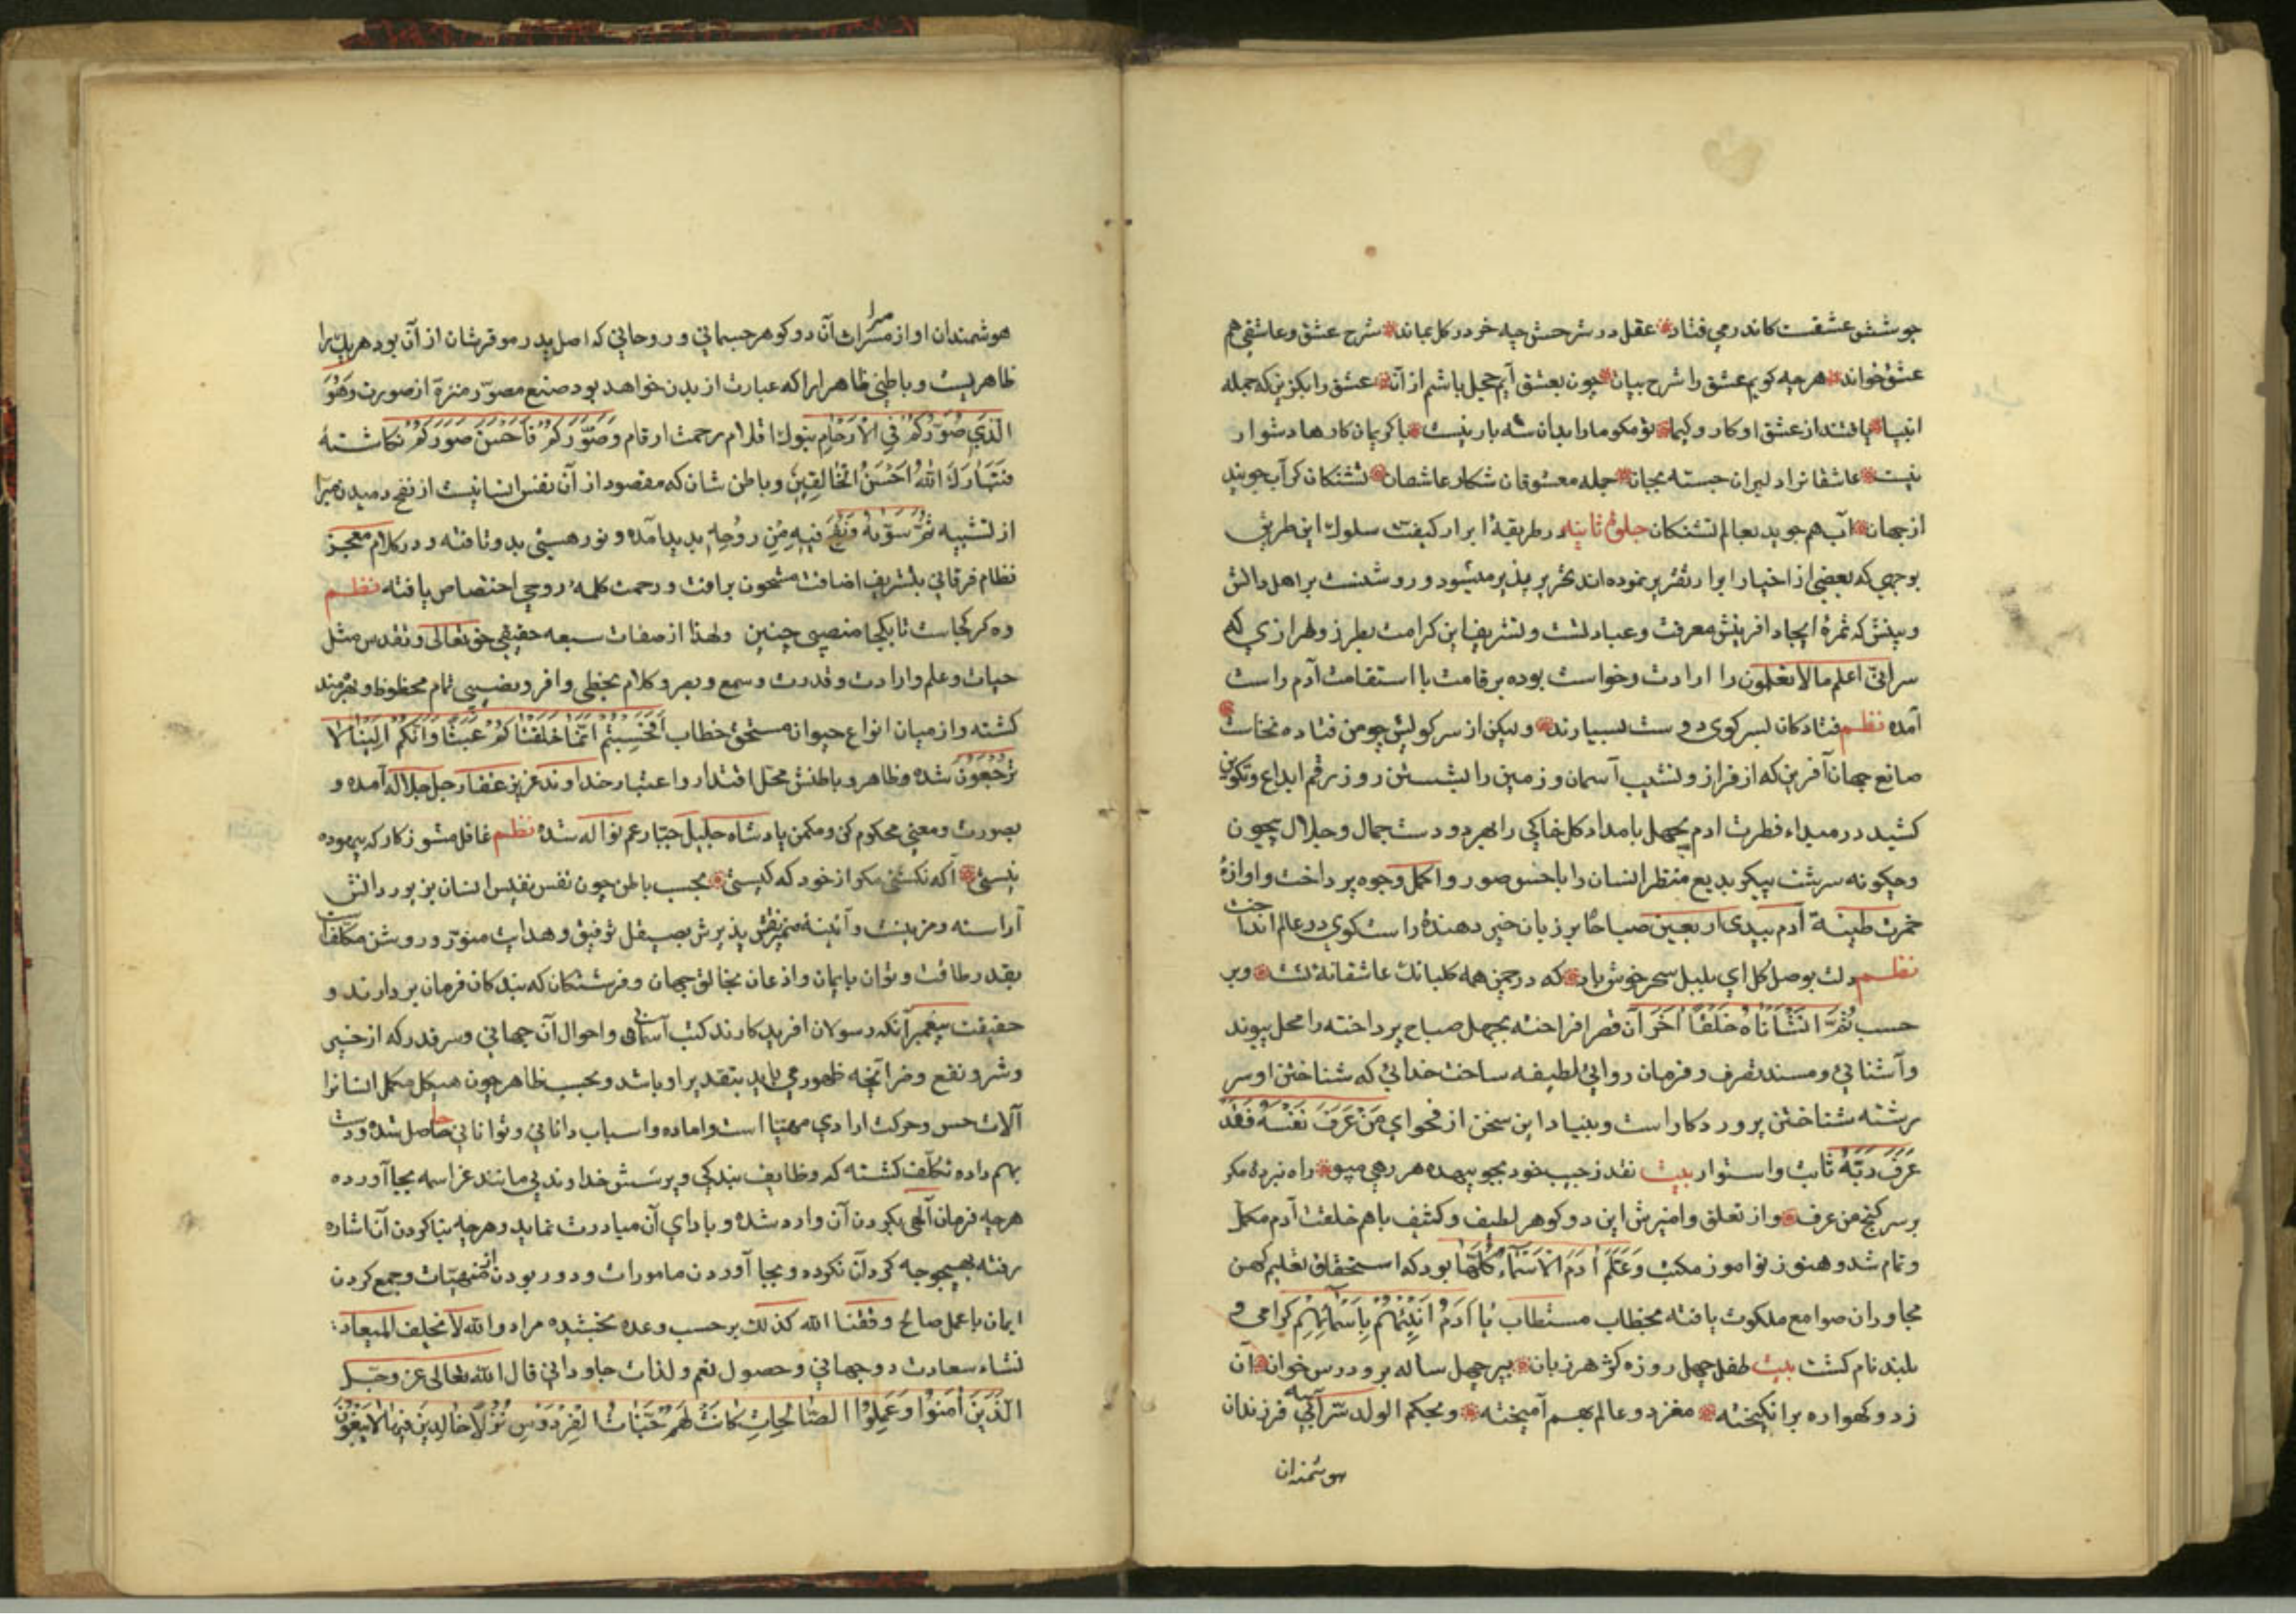 جوشش عشقست کاندر می فتاد عقل در شرحش چه خر در کل بماند شرح عشق و عاشقی هم
عشق خواند هر چه کویم عشق را شرح بیان چون بعشق آیم خجل باشم از آن عشق را بکزین که جمله
انبیا یافتند از عشق او کار و کیا تو مکو ما را بدان شه بار نیست با کریمان کارها دشوار
نیست عاشقانرا دلبران جسته بجان جمله معشوقان شکار عاشقان تشنکان کر آب جویند
از جهان آب هم جوید بعالم تشنکان جلوهٔ ثانیه در طریقهٔ ابرار کیفیت سلوک این طریق
بوجهی که بعضی از اخیار ابرار تقریر نموده اند تحریر پذیر میشود و روشنست بر اهل دانش
و بینش که ثمرهٔ ایجاد افرینش معرفت و عبادتست و تشریف این کرامت بطرز و طرازی که
سر انی اعلم ما لا تعلمون را ارادت و خواست بوده بر قامت با استقامت آدم راست
آمده نظم فتادکان بسر کوی دوست بسیارند ولیکن از سر کویش چو من فتاده نخاست
صانع جهان آفرین که از فراز و نشیب آسمان و زمین را بشستن روز رقم ابداع و تکوین
کشید در مبداء فطرت ادم بچهل بامداد کل خاکی را بهر دو دست جمال و جلال بیچون
و چکونه سرشت پیکر بدیع منظر انسان را باحسن صور و اکمل وجوه پرداخت و اوازهٔ
خمرت طینة آدم بیدی اربعین صباحا بر زبان خبر دهندهٔ راست کوی در عالم انداخت
نظم دلت بوصل کل ای بلبل سحر خوش باد که در چمن همه کلبانک عاشقانهٔ تست و بر
حسب ثُمَّ انشَأناهُ خَلقًا اٰخَرَ آن قصر افراخته بچهل صباح پرداخته را محل پیوند
و آشنائی و مسند تصرف و فرمان روائی لطیفه ساخت خدائی که شناختن او سر
رشته شناختن پروردکار است و بنیاد این سخن از فحوای مَن عَرَفَ نَفسَهُ فَقَد
عَرَفَ رَبَّهُ ثابت و استوار بیت نقد ز جیب خود بجو بیهده هر رهی مپو راه نبردهٔ مکر
بر سر کنج من عرف و از تعلق و امیزش این دو کوهر لطیف و کثیف باهم خلقت آدم مکمل
و تمام شد و هنوز نواموز مکتب وَعَلَّمَ اٰدَمَ الاَسمَآءَ کُلَّهَا بود که استحقاق تعلیم کهن
مجاوران صوامع ملکوت یافته بخطاب مستطاب یَا اٰدَمُ اَنبِئهُم بِاَسمَآئِهِم کرامی و
بلند نام کشت بیت طفل چهل روزه کژ هر زبان پیر چهل ساله برو درس خوان آن
زد و کهواره بر انکیخته مغز دو عالم بهم آمیخته و بحکم الولد سر ابیه فرزندان
هوشمندان
هوشمندان او از میراث آن دو کوهر جسمانی و روحانی که اصل پدر موقر شان از آن بود هر یک را
ظاهریست و باطنی ظاهر ایرا که عبارت از بدن خواهد بود صنع مصور منزه از صورت وَهُوَ
الَّذِی صَوَّرَکُم فِی الاَرحَامِ بنوک اقلام رحمت ارقام وَصَوَّرَکُم فَاَحسَنَ صُوَرَکُم نکاشته
فَتَبَارَکَ اللّٰهُ اَحسَنُ الخَالِقِینَ و باطن شان که مقصود از آن نفس انسانیست از نفح دمیدن مبرا
از تشبیه ثُمَّ سَوّیهُ وَنَفَخَ فِیهِ مِن رُوحِهِ پدید آمده و نور هستی بدو تافته و در کلام معجز
نظام فرقانی بتشریف اضافت مشحون برافت و رحمت کلمهٔ روحی اختصاص یافته نظم
وه کز کجاست تا بکجا منصبی چنین و لهذا از صفات سبعه حقیقی حق تعالی و تقدس مثل
حیات و علم و ارادت و قدرت و سمع و بصر و کلام بحظی وافر و نصیبی تمام محظوظ و بهرمند
کشته و از میان انواع حیوانه مستحق خطاب اَفَحَسِبتُم اَنَّمَا خَلَقنَاکُم عَبَثًا وَاَنَّکُم اِلَینَا لَا
تُرجَعُونَ شده و ظاهر و باطنش محل اقتدار و اعتبار خداوند عزیز غفار جل جلاله آمده و
بصورت و معنی محکوم کن و مکمن پادشاه جلیل جبار عم نواله شده نظم غافل مشو ز کار که بیهوده
نیستی آکه نکشتی مکر از خود که کیستی بحسب باطن چون نفس نفیس انسان بزیور دانش
آراسته و مزینست و آئینهٔ ضمیر نقش پذیرش بصیقل توفیق و هدایت منور و روشن مکلفست
بقدر طاقت و توان بایمان و اذعان بخالق جهان و فرشتکان که بندکان فرمان بردارند و
حقیقت پیغمبر آنکه رسولان افریدکارند کتب آسمانی و احوال آن جهانی و سر قدر که از خیر
و شر و نفع و ضر آنچه ظهور می یابد بتقدیر او باشد و بحسب ظاهر چون هیکل مکمل انسانرا
آلات حس و حرکت ارادی مهیا است و اماده و اسباب دانائی و توانائی حاصل شده و دست
بهم داده تکلف کشته که وظایف بندکی و پرستش خداوند بی مانند عز اسمه بجا آورده
هر چه فرمان آلهی بکردن آن وارد شده و بادای آن مبادرت نماید و هر چه بناکردن آن اشاره
رفته بهیچ وجه کرد آن نکرده و بجا آوردن مامورات و دور بودن از منهیات و جمع کردن
ایمان با عمل صالح وفقنا الله کذلک بر حسب وعده بخشیده مراد والله لا یخلف المیعاد
نشاء سعادت دو جهانی و حصول نعم و لذات جاودانی قال الله تعالی عز و جل
الَّذِینَ اٰمَنُوا وَعَمِلُوا الصَّالِحَاتِ کَانَت لَهُم جَنَّاتُ الفِردَوسِ نُزُلًا خَالِدِینَ فِیهَا لَا یَبغُونَ